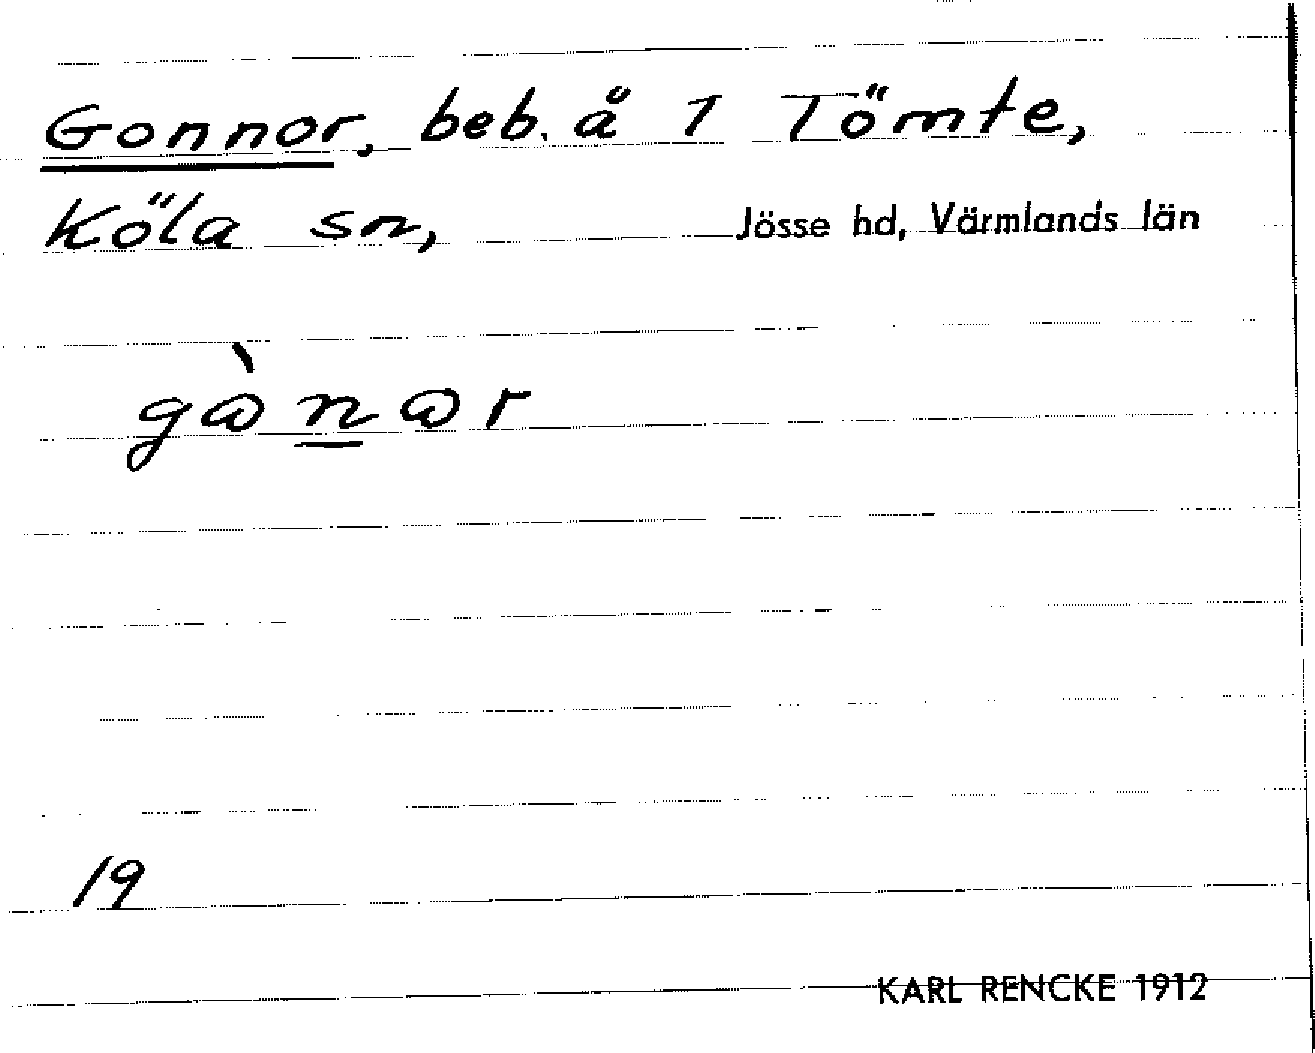 Gonnor, beb. å 1 Tömte,
Köla sn, Jösse hd, Värmlands län
gὼn̲ωr
19
KARL RENCKE 1912